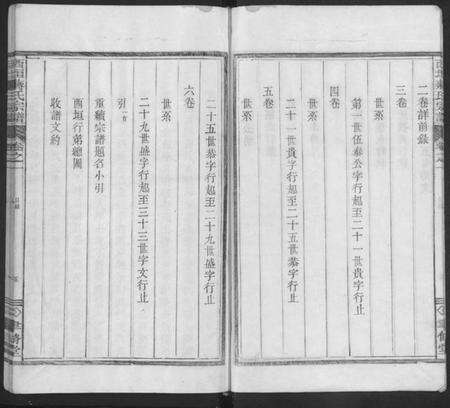 二卷詳前錄
三卷
世系
第一世伍泰公字行起至二十一世貴字行止
四卷
世系
二十一世貴字行起至二十五世恭字行止
五卷
世系
二十五世恭字行起至二十九世盛字行止
六卷
世系
二十九世盛字行起至三十三世字文行止
引
重續宗譜題名小引
酉垣行第總圖
收譜文約
氏宗譜
卷之